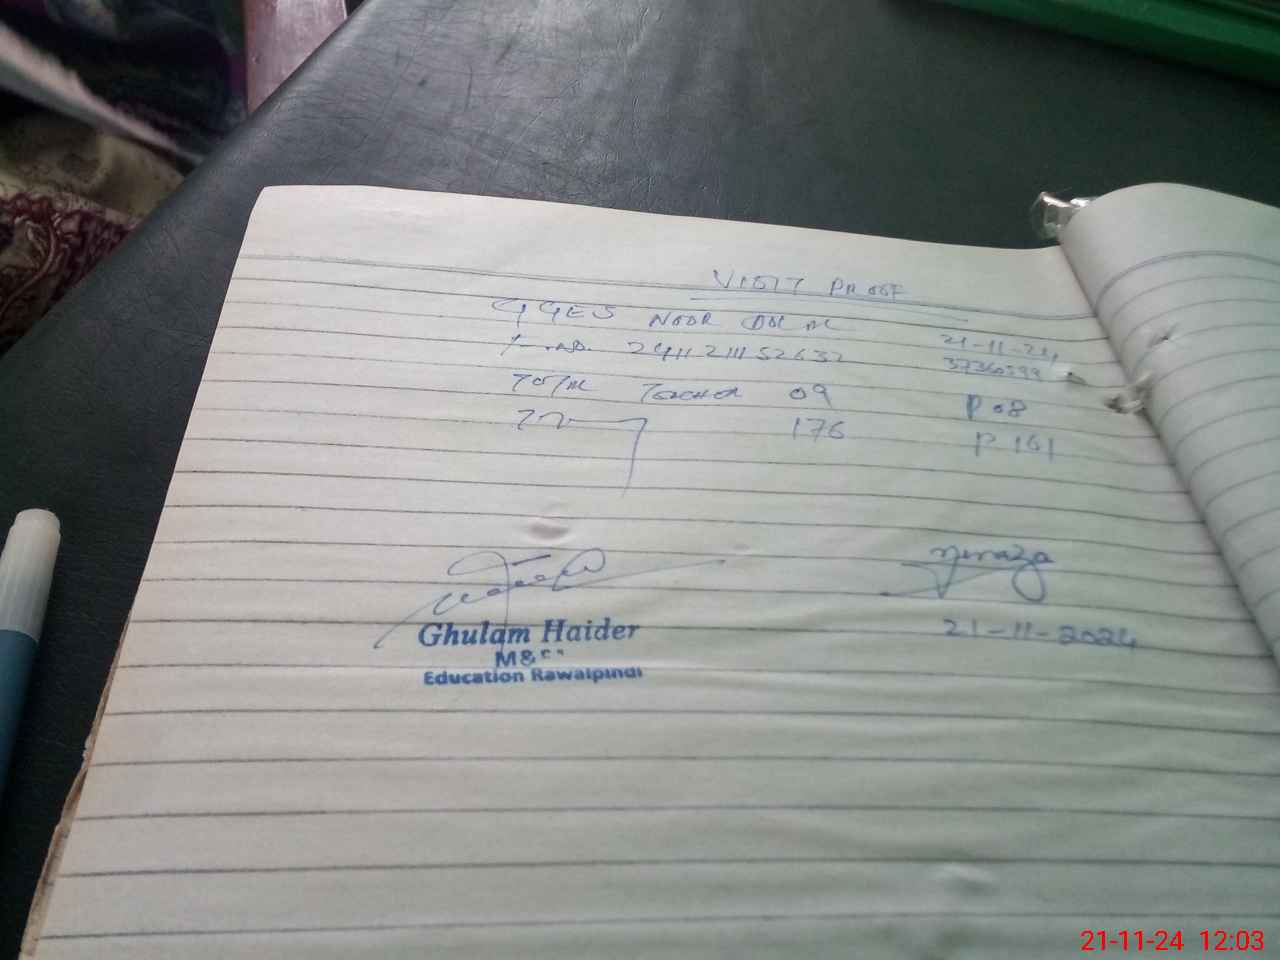 VISIT PROOF
GGES NOOR
21-11-24
2411211152632
37360599
TOTAL TEACHER 09 P 08
176 P 161
Ghulam Haider
M&
Education Rawalpindi
21-11-2024
21-11-24 12:03